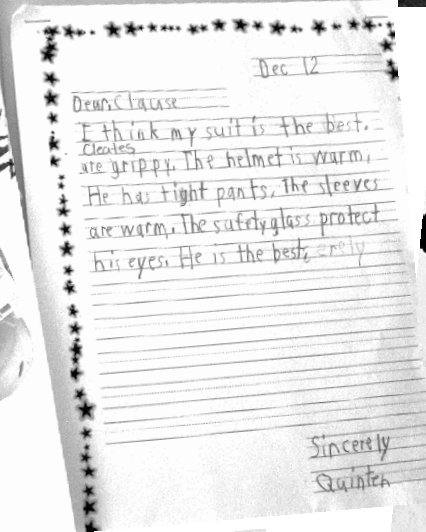 Dec 12
Dear, Clause
I think my suit is the best.
Cleates
are grippy. The helmet is warm,
He has tight pants. The sleeves
are warm. The safety glass protect
his eyes. He is the best, erely
Sincerely
Quinten